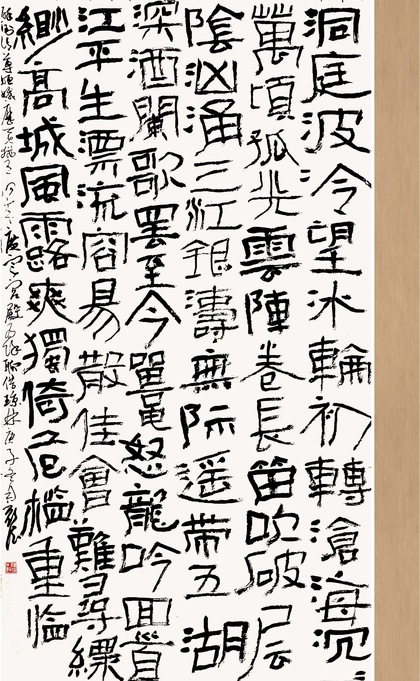 洞庭波冷望冰輪初轉滄海沉〻
萬頃孤光雲陣卷長笛吹破层
陰洶涌三江銀濤無際遥带五湖
深酒闌歌罷至今鼉怒龍吟回首
江平生漂流容易散佳會難尋縹
緲高城風露爽獨倚危檻重临